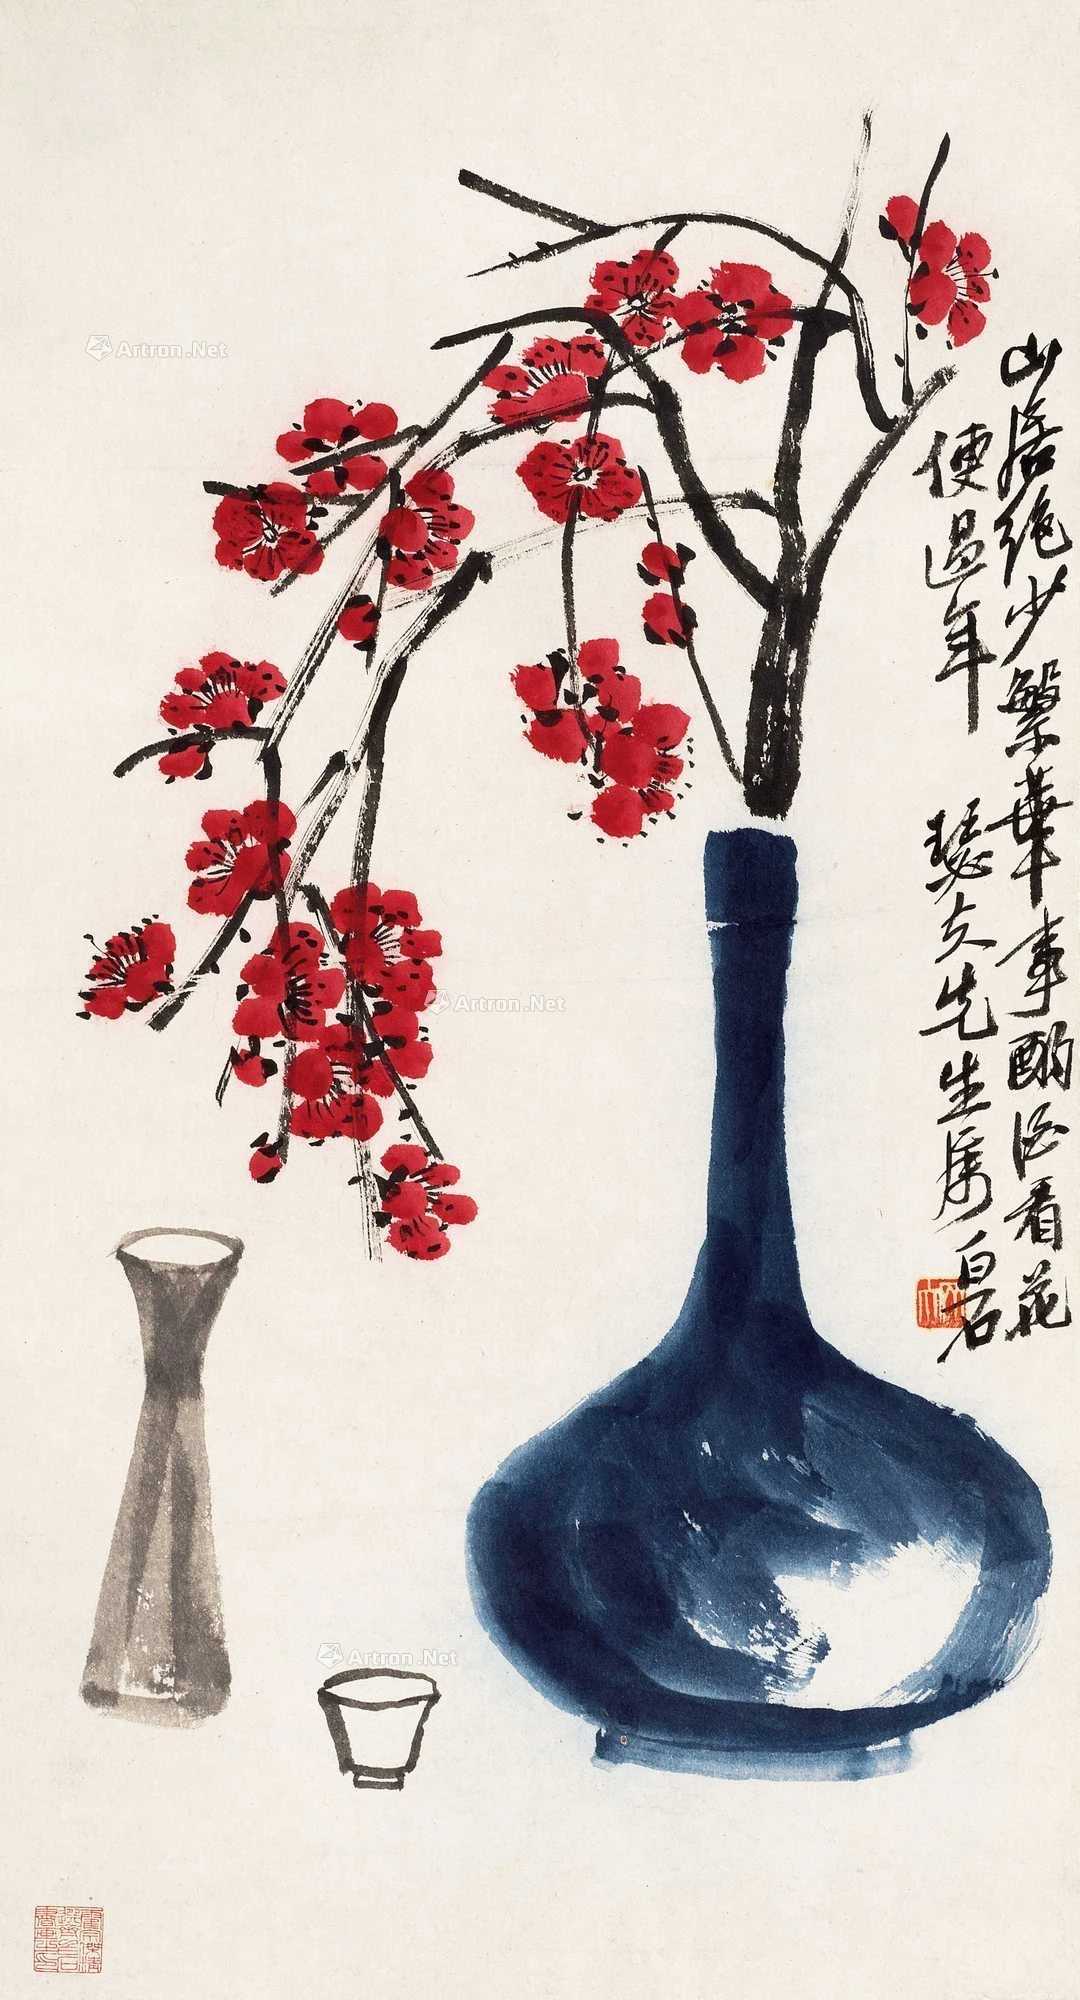 山居绝少繁華事酌酒看花
便過年
瑟夫先生属
白石
Artron.Net
Artron.Net
Artron.Net